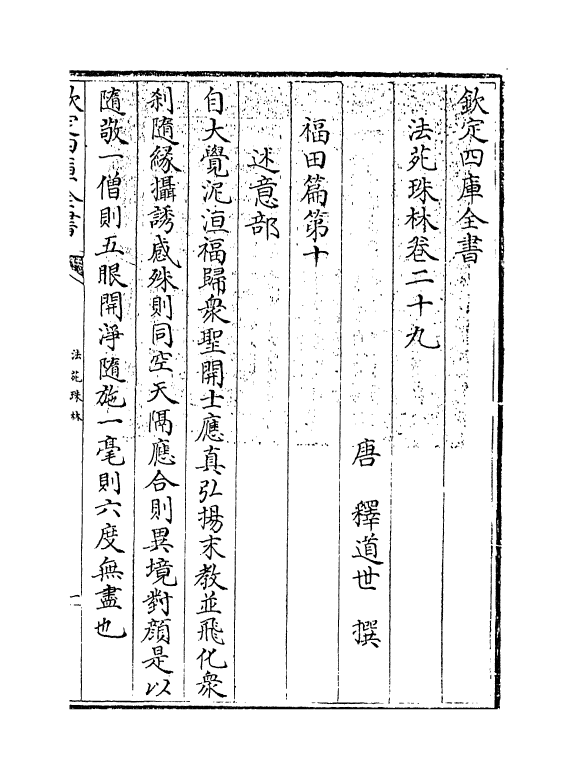 欽定四庫全書
法苑珠林卷二十九
唐 釋道世 撰
福田篇第十
述意部
自大覺泥洹福歸衆聖開士應真弘揚末教並飛化衆
刹隨緣攝誘感殊則同空天隔應合則異境對顔是以
隨敬一僧則五眼開淨隨施一毫則六度無盡也
欽定四庫全書
法苑珠林
一